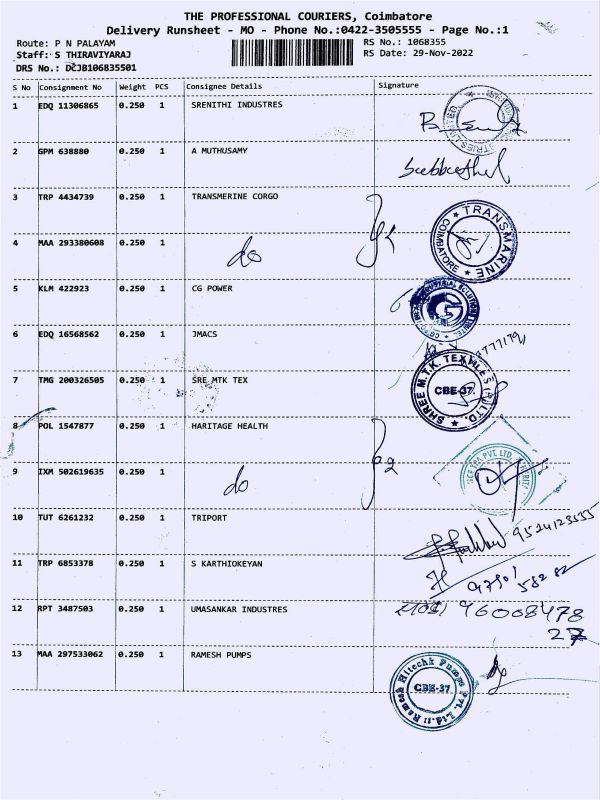 THE PROFESSIONAL COURIERS, Coimbatore
Delivery Runsheet - MO - Phone No.:0422-3505555 - Page No.:1
Route: P N PALAYAM
RS No.: 1068355
Staff: S THIRAVIYARAJ
RS Date: 29-Nov-2022
DRS No.: DCJB106835501
S No Consignment No Weight PCS Consignee Details Signature
1 EDQ 11306865 0.250 1 SRENITHI INDUSTRES
2 GPM 638880 0.250 1 A MUTHUSAMY
3 TRP 4434739 0.250 1 TRANSMERINE CORGO
TRANSMARINE COIMBATORE
4 MAA 293380608 0.250 1 do
5 KLM 422923 0.250 1 CG POWER
6 EDQ 16568562 0.250 1 JMACS
7 TMG 200326505 0.250 1 SRE MTK TEX
SHREE M.T.K. TEXTILES (P) LTD. CBE-37
8 POL 1547877 0.250 1 HARITAGE HEALTH
9 IXM 502619635 0.250 1 do
10 TUT 6261232 0.250 1 TRIPORT
9524123535
11 TRP 6853378 0.250 1 S KARTHIOKEYAN
12 RPT 3487503 0.250 1 UMASANKAR INDUSTRES
96008478
27
13 MAA 297533062 0.250 1 RAMESH PUMPS
Ramesh Hitechk Pumps Pvt. Ltd. CBE-37